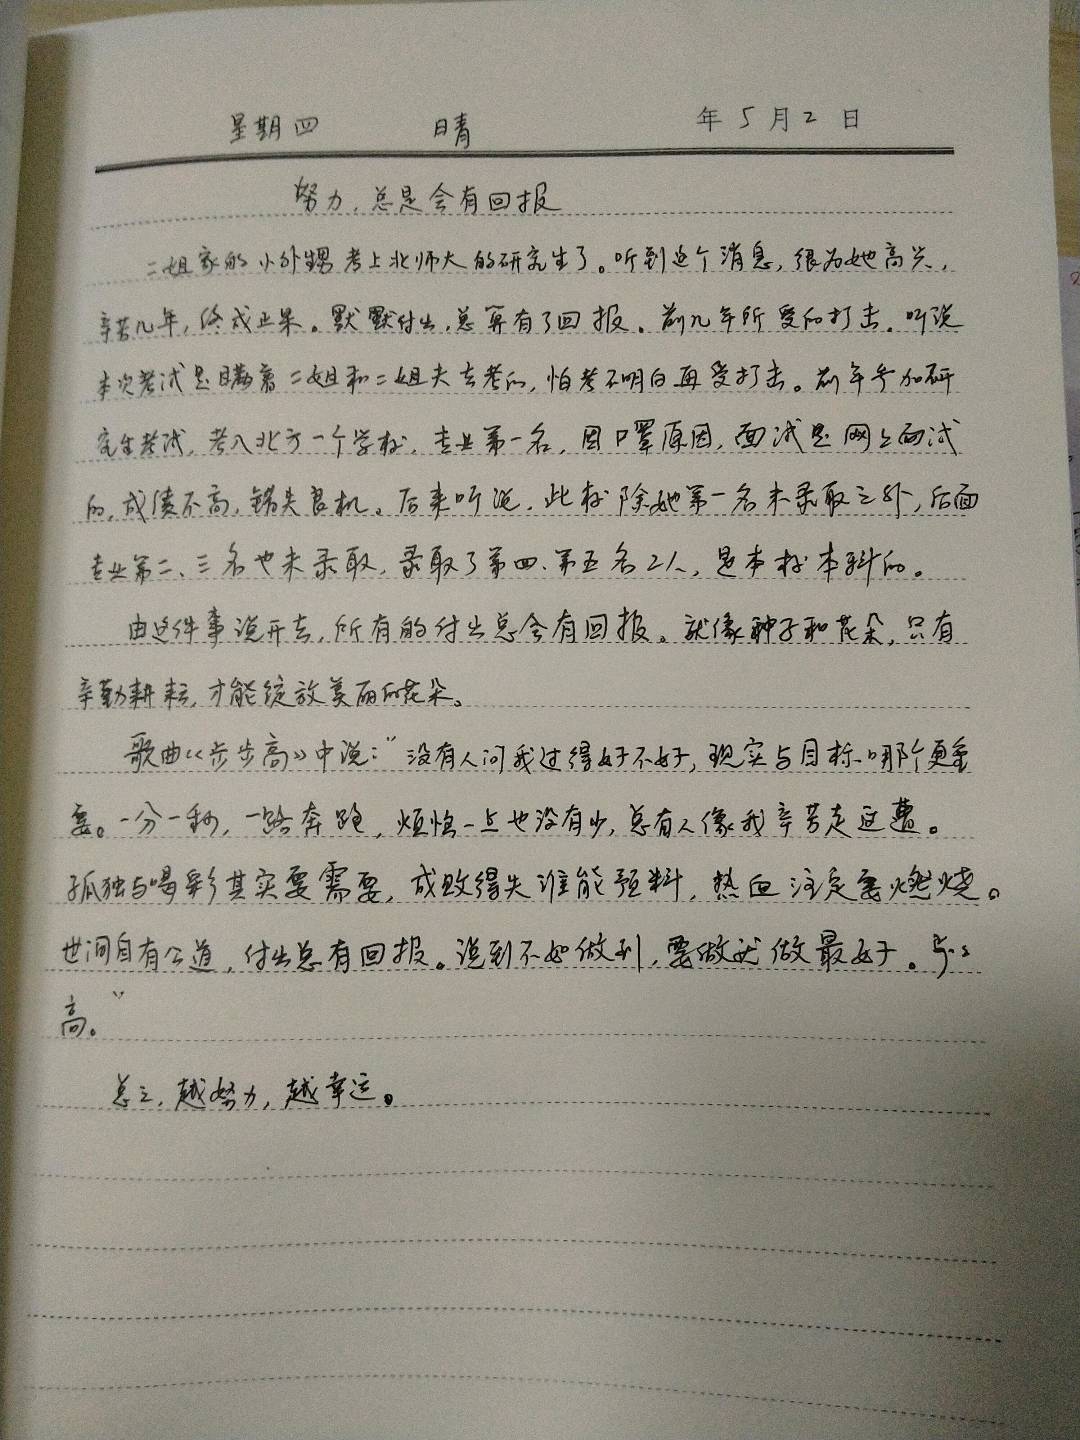 星期四 晴 年5月2日
努力,总是会有回报
二姐家的小外甥考上北师大的研究生了。听到这个消息,很为她高兴,
辛苦几年,终成正果。默默付出,总算有了回报。前几年所受的打击。听说
本次考试是瞒着二姐和二姐夫去考的,怕考不明白再受打击。前年参加研
究生考试,考入北方一个学校,专业第一名,因口罩原因,面试是网上面试
的,成绩不高,错失良机。后来听说,此校除她第一名未录取之外,后面
专业第二、三名也未录取,录取了第四、第五名2人,是本校本科的。
由这件事说开去,所有的付出总会有回报。就像种子和花朵,只有
辛勤耕耘,才能绽放美丽的花朵。
歌曲《步步高》中说:“没有人问我过得好不好,现实与目标哪个更重
要。一分一秒,一路奔跑,烦恼一点也没有少,总有人像我辛苦走这遭。
孤独与喝彩其实要需要,成败得失谁能预料,热血注定要燃烧。
世间自有公道,付出总有回报。说到不如做到,要做就做最好。步步
高。”
总之,越努力,越幸运。